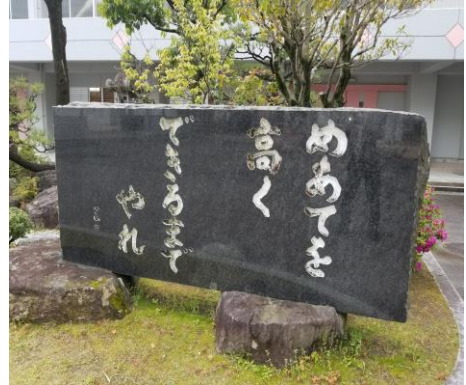 めあてを
高く
できるまで
やれ